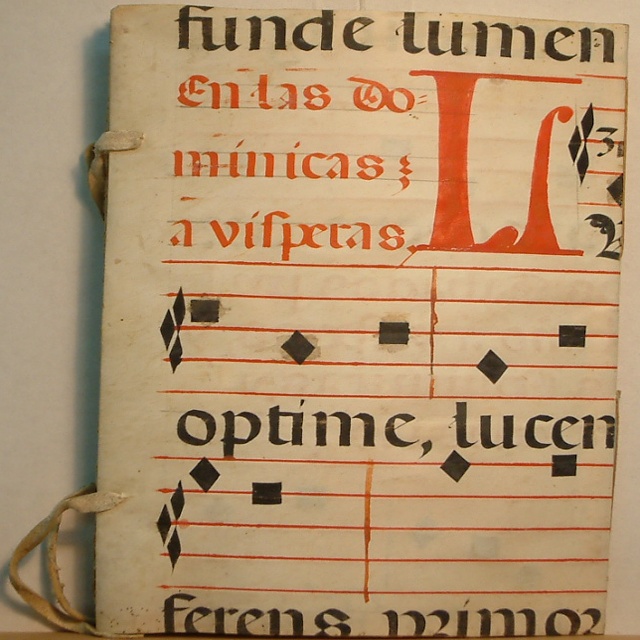 funde lumen
En las do=
minicas ;
a visperas. L
optime, lucen
ferens primor